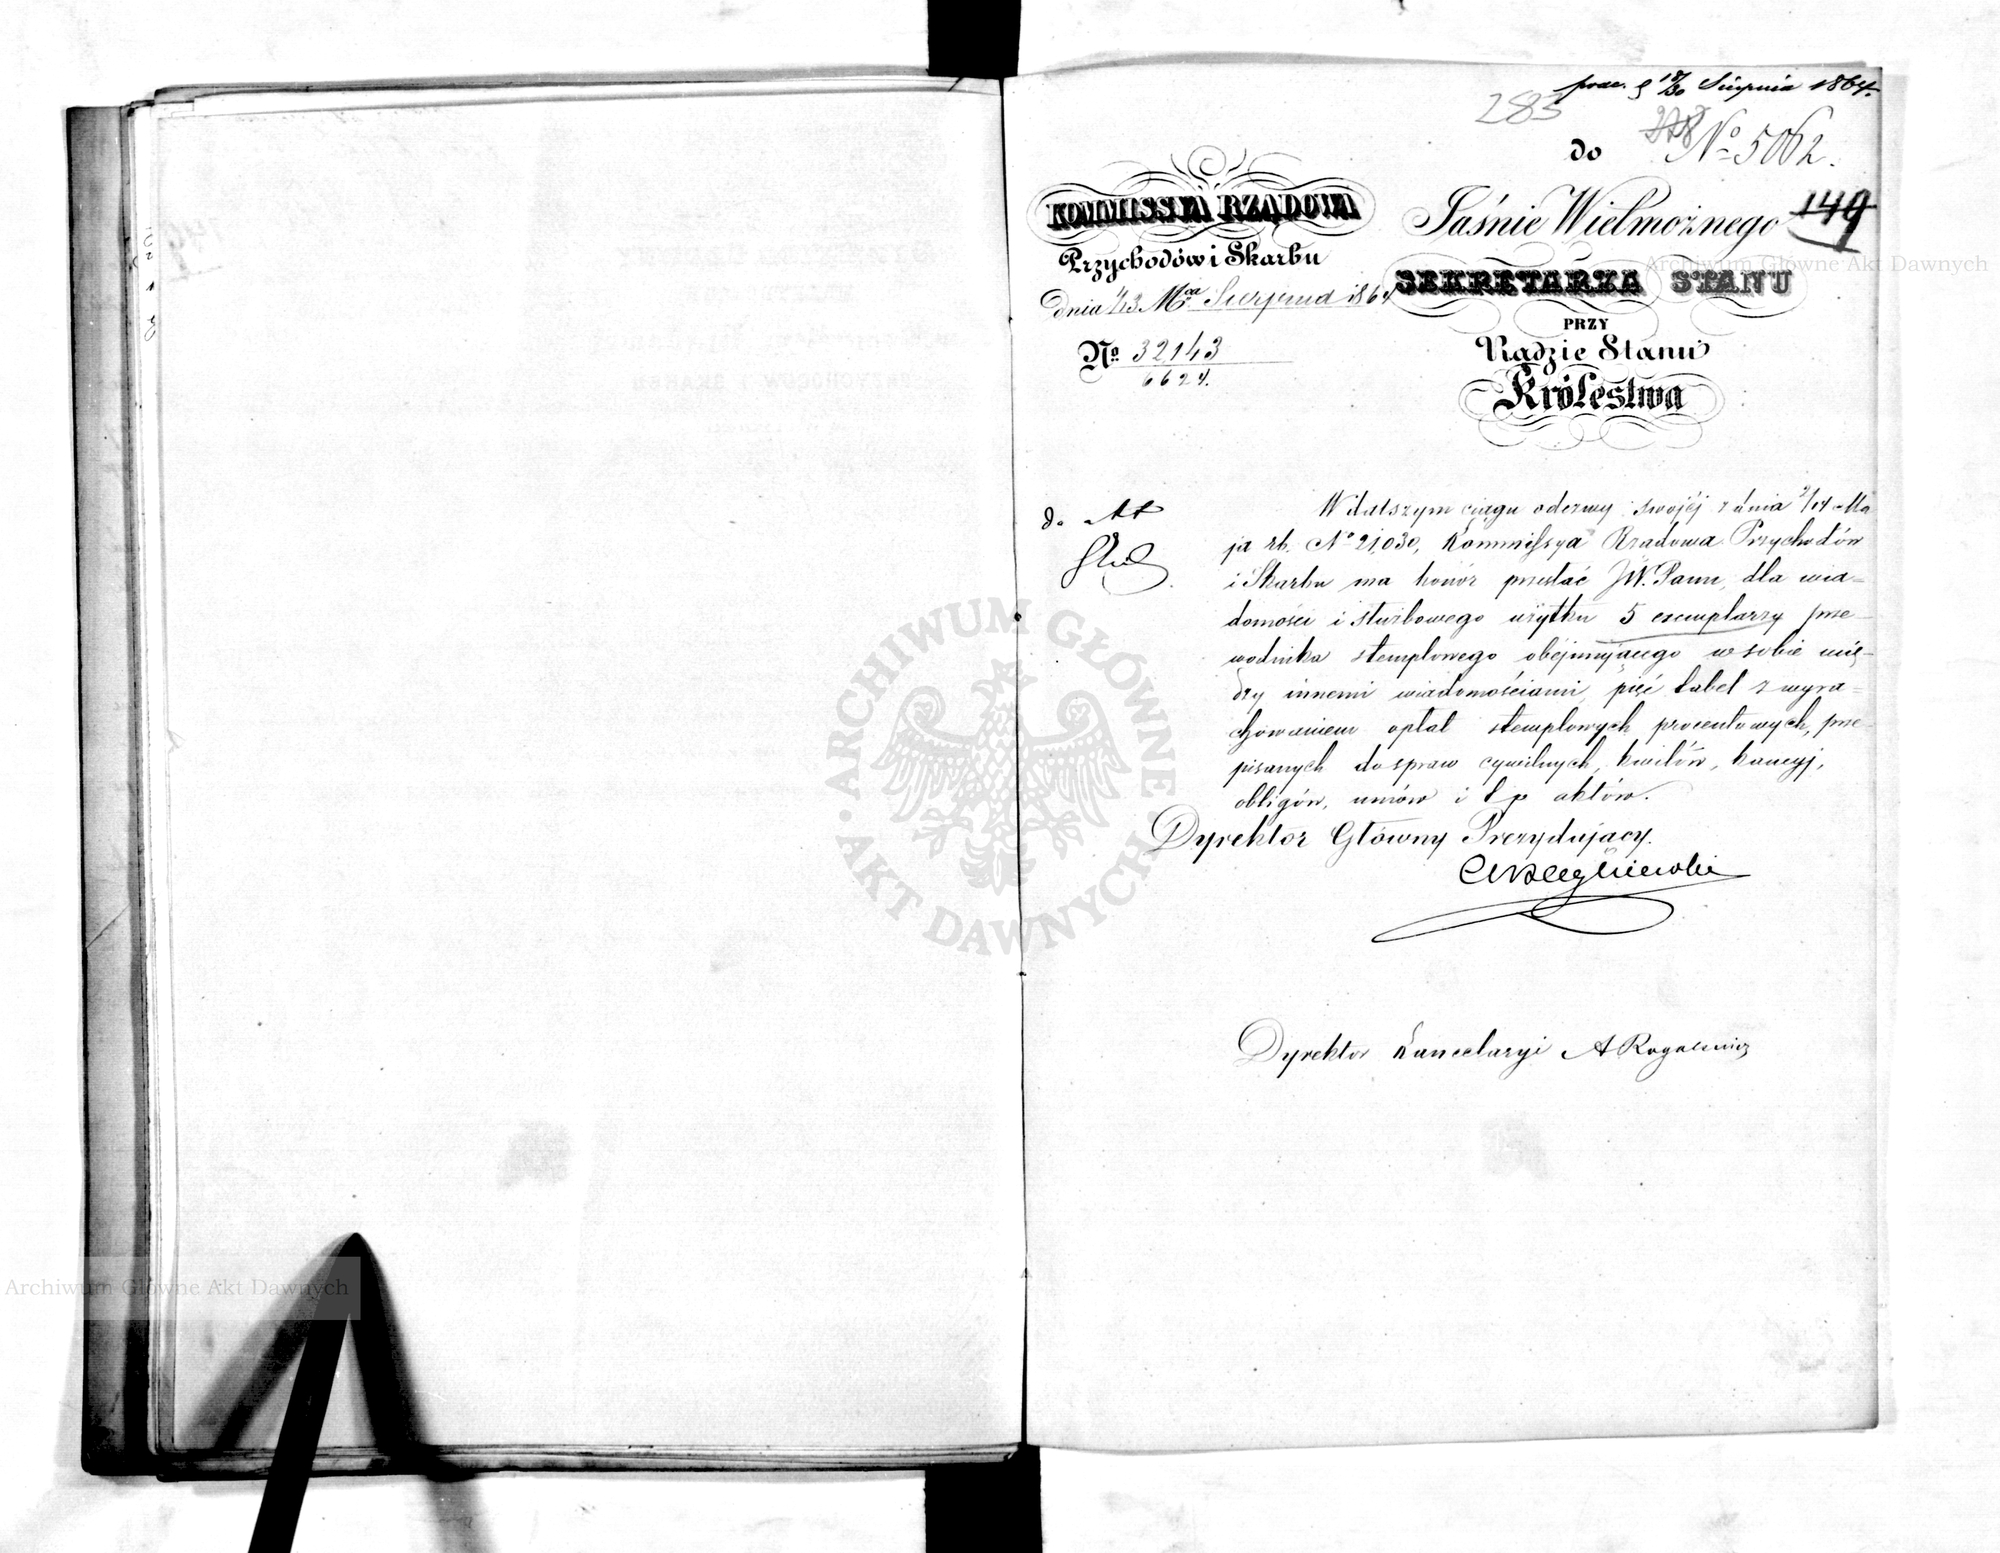 prae. d 18/30 Sierpnia 1864.
283
278 No 5062.
149
do
KOMMISSYA RZĄDOWA
Przychodów i Skarbu
dnia 1/13 Mca Sierpnia 1864
No 32143
6624.
Jaśnie Wielmożnego
SEKRETARZA STANU
PRZY
Radzie Stanu
Królestwa
do Akt
W dalszym ciągu odezwy swojéj z dnia 2/14 Ma
ja rb. No 21,030, Kommissya Rządowa Przychodów
i Skarbu ma honor przesłać JW. Panu, dla wia-
domości i służbowego użytku 5 exemplarzy prze-
wodnika stemplowego obejmującego w sobie mię-
dzy innemi wiadomościami, pięć tabel z wyra-
chowaniem opłat stemplowych procentowych, prze-
pisanych do spraw cywilnych, kwitów, kaucyj,
obligów, umów i t p aktów.
Dyrektor Główny Prezydujący.
Dyrektor Kancelaryi A Rogalewicz
ARCHIWUM GŁÓWNE AKT DAWNYCH
Archiwum Główne Akt Dawnych
Archiwum Główne Akt Dawnych